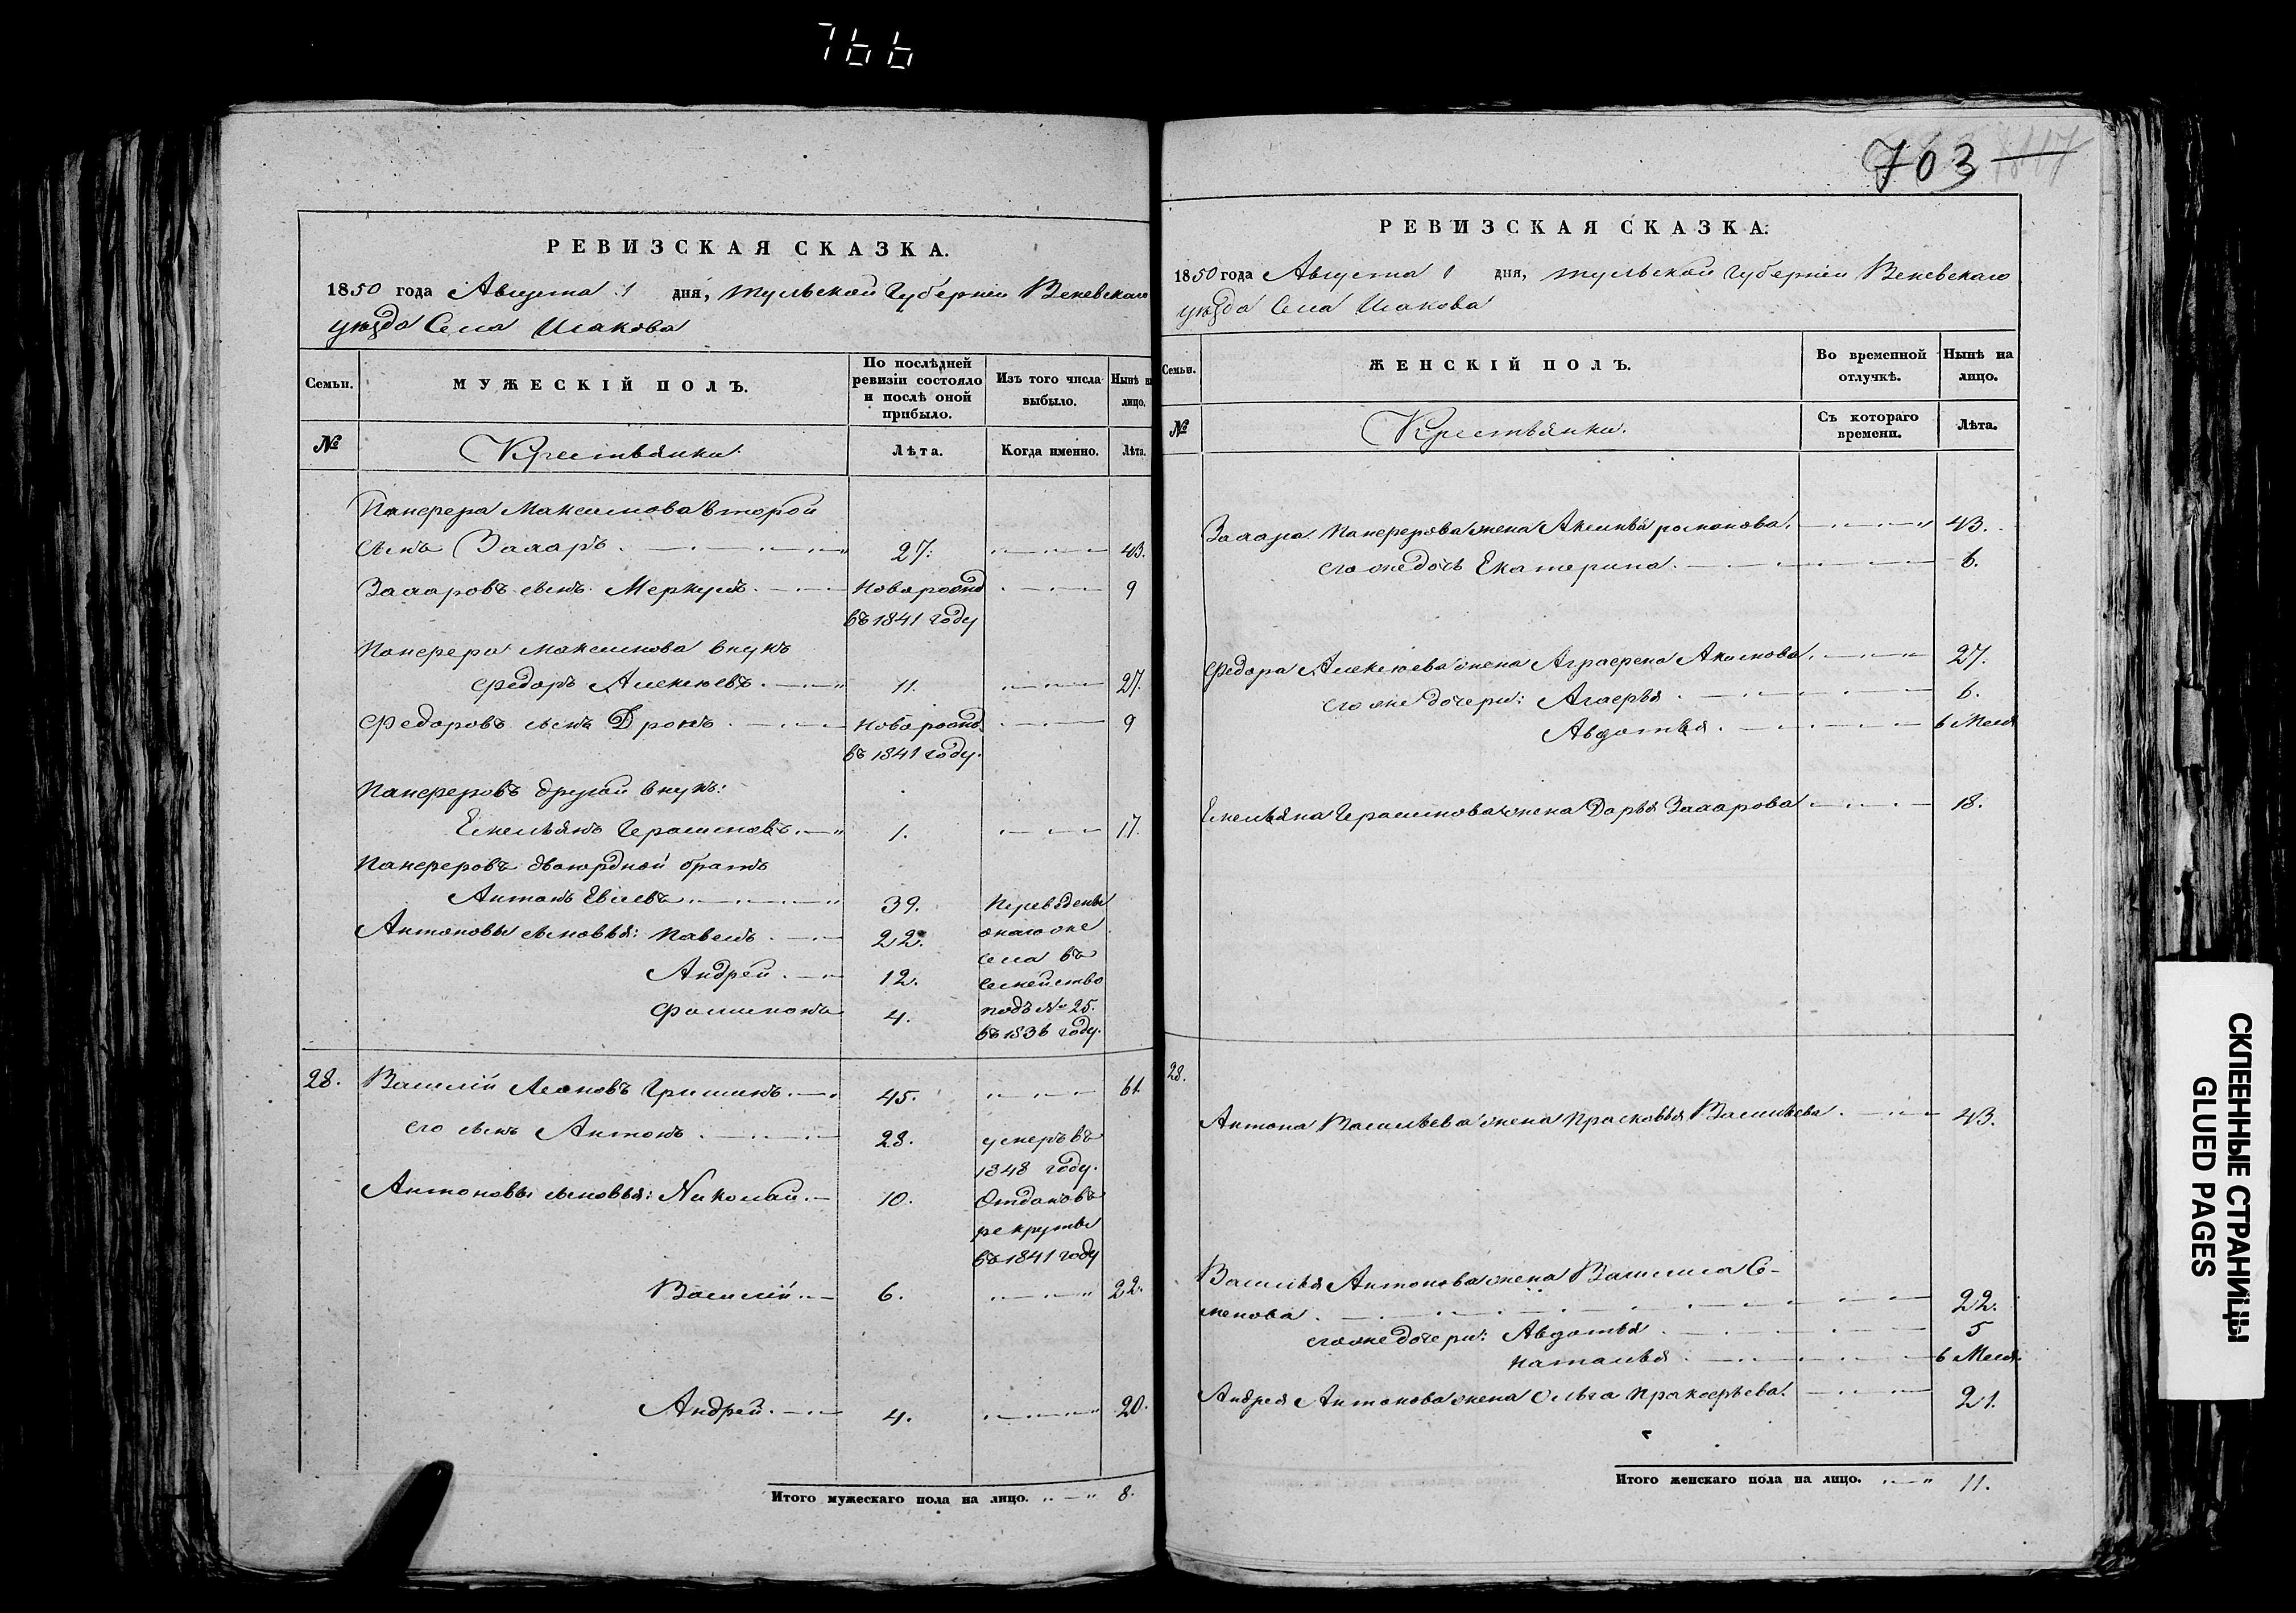 766
РЕВИЗСКАЯ СКАЗКА.
1850 года Августа 1 дня, Тульской Губернiи Веневскаго
уѣзда Села Исакова
Семьи.
МУЖЕСКIЙ ПОЛЪ.
По послѣдней ревизiи состояло и послѣ оной прибыло.
Изъ того числа выбыло.
Нынѣ на лицо.
№
Крестьянки.
Лѣта.
Когда именно.
Лѣта.
Панфера Максимова второй
сынъ Захаръ 27. 43.
Захаровъ сынъ Меркулъ новорожд 9
въ 1841 году
Панфера Максимова внукъ
Федоръ Алексѣевъ 11. 27.
Федоровъ сынъ Дронъ новорожд. 9
въ 1841 году.
Панферовъ другой внукъ:
Емельянъ Герасимовъ 1. 17.
Панферовъ двоюрдной братъ
Антонъ Евсеевъ 39. Переведены
Антоновы сыновья: Павелъ 22. онаго же
села въ
Андрей 12. семейство
Филимонъ 4. подъ № 25.
въ 1836 году.
28. Василiй Леоновъ Гришинъ 45. 61
его сынъ Антонъ 28. умеръ въ
1848 году.
Антоновы сыновья: Николай 10. Отданъ въ
рекруты
въ 1841 году
Василiй 6. 22.
Андрей 4. 20.
Итого мужескаго пола на лицо. 8.
703
РЕВИЗСКАЯ СКАЗКА.
1850 года Августа 1 дня, Тульской Губернiи Веневскаго
уѣзда Села Исакова
Семьи.
ЖЕНСКIЙ ПОЛЪ.
Во временной отлучкѣ.
Нынѣ на лицо.
№
Крестьянки.
Съ котораго времени.
Лѣта.
Захара Панферова жена Акулина романова. 43.
его же дочь Екатерина. 6.
Федора Алексѣева жена Аграфена Акимова. 27.
его же дочери: Агафья 6.
Авдотья. 6 Меся
Емельяна Герасимова жена Дарья Захарова 18.
28.
Антона Васильева жена Прасковья Васильева. 43.
Василья Антонова жена Василиса Се-
менова 22.
его же дочери: Авдотья 5
Наталья 6 Меся.
Андрея Антонова жена Ольга Пракофьева. 21.
Итого женскаго пола на лицо. 11.
СКЛЕЕННЫЕ СТРАНИЦЫ
GLUED PAGES